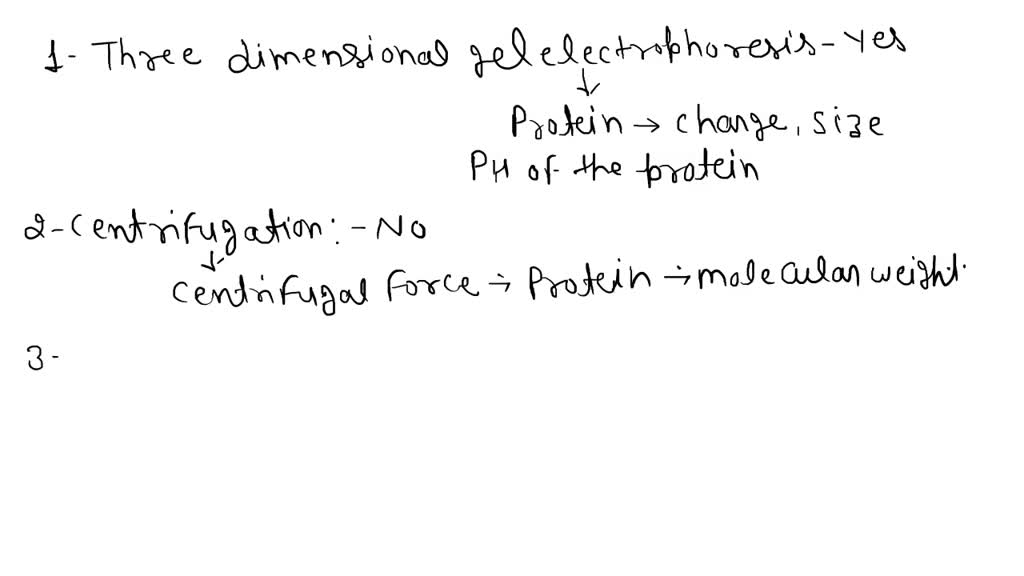 1- Three dimensional gel electrophoresis - Yes
↓
Protein → change, size
PH of the protein
2- Centrifugation: - No
↓
Centrifugal Force → Protein → molecular weight.
3-